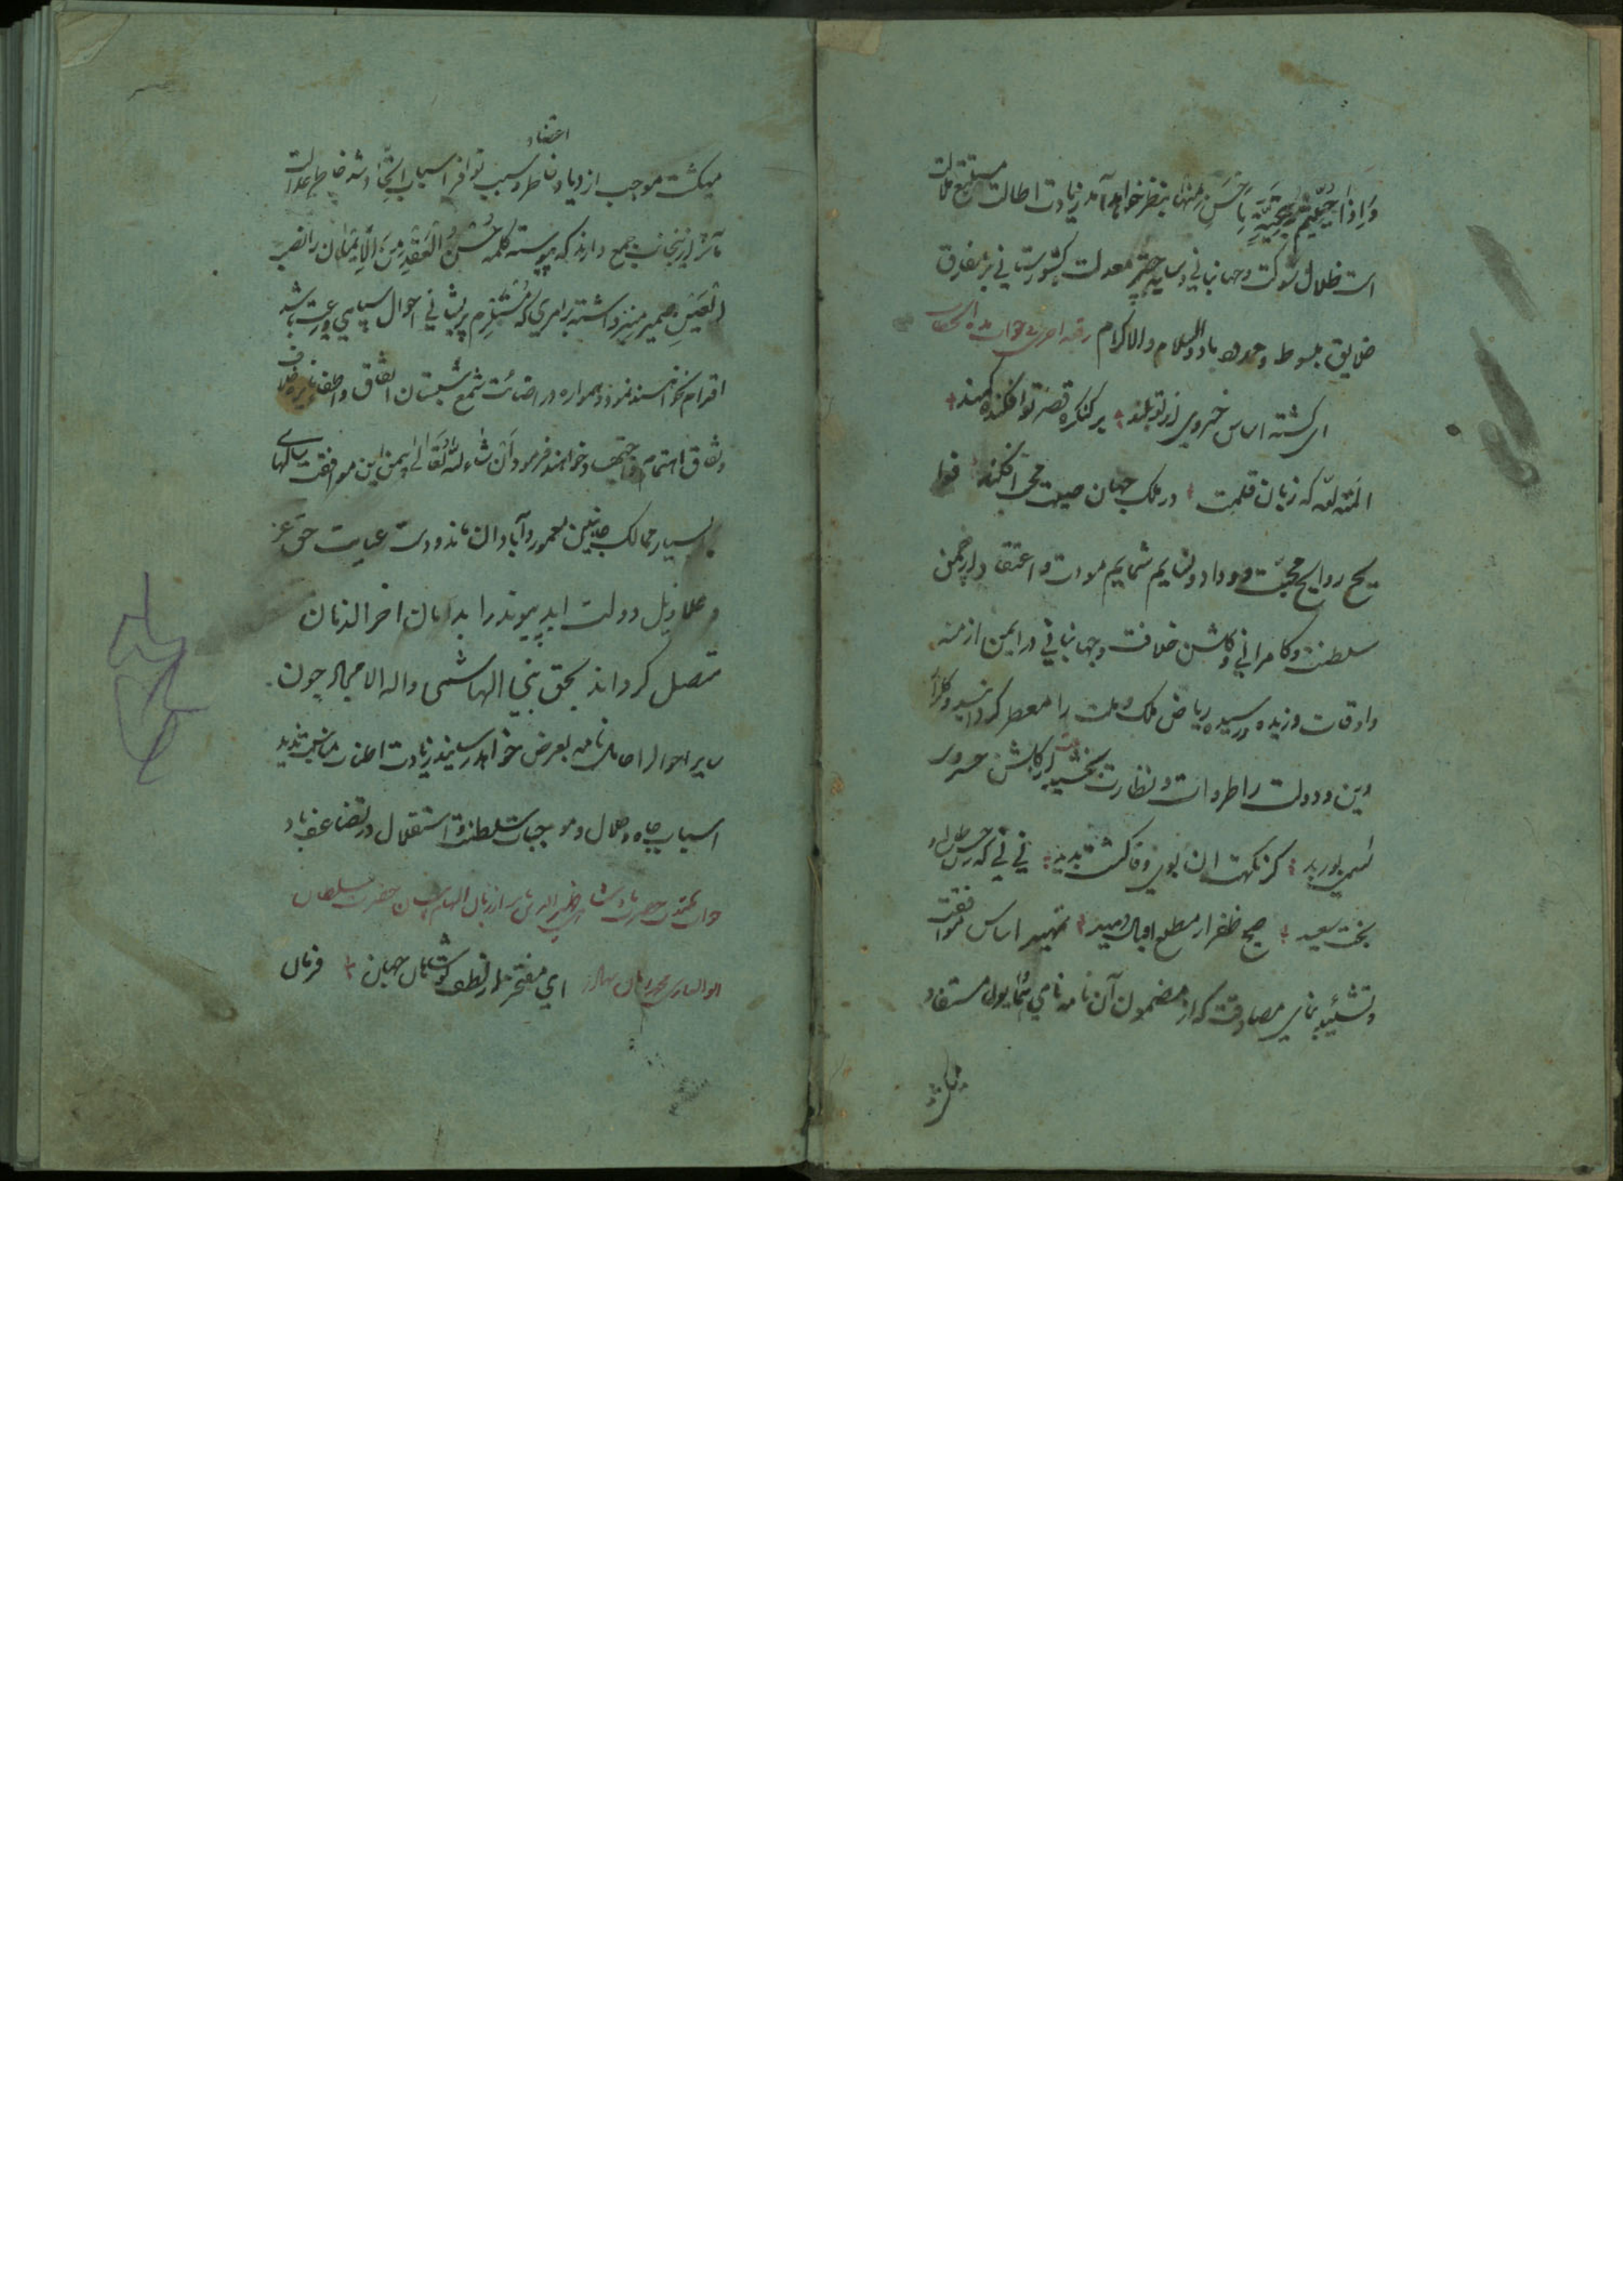 وَاِذَا حُیّیتُم بِتَحِیَّةٍ بِاَحسَنِ مِنها بنظر خواهد آمد زیادت اطالت مستتبع ملالت
است ظلال شوکت و جهانبانی و سایه چتر معدلت کشورستانی بر مفارق
خلایق مبسوط و ممدود باد والسلام والاکرام رقعه اخری
ای گشته اساس خسروی از تو بلند بر کنکره قصر تو افکنده کمند
المنة لله که زبان قلمت در ملک جهان صیت محبی افکند فوا
یح روایح محبت و وداد و نسایم شمایم مودت و اعتقاد در چمن
سلطنت و کامرانی و گلشن خلافت و جهانبانی در ایمن ازمنه
واوقات وزیده و رسیده ریاض ملک و ملت را معطر کردانید و کلزار
دین و دولت را طراوت و نظارت بخشید از گلشن خسروی
نسیمی بوزید کز نکهت ان بوی وفا گشت پدید نی نی که
بخت سعید صبح ظفر از مطلع اقبال دمید تمهید اساس موافقت
و تشیید بنای مصادقت که از مضمون آن نامه نامی همایون مستفاد
میکشت موجب ازدیاد اعتضاد خاطر و سبب توافر اسباب اتحاد شد خاطر عدالت
مآثر از اینجانب جمع دارند که پیوسته کلمه حُسنُ العَقدِ مِنَ الاِیمَان را نصب
العَینِ ضمیر منیر داشته بر امری که مُستَلزِم پریشانی احوال سپاهی و رعیت باشد
اقدام نخواهند نمود و همواره در اضائت شمع شبستان اتفاق و اطفای نایره خلاف
و نفاق اهتمام و اجتهاد خواهند فرمود ان شاء الله تعالی بیمن این موافقت سالهای
بسیار ممالک جانبین معمور و آبادان ماند و دست عنایت حق عز
و علا ذیل دولت ابد پیوند را بدامان اخر الزمان
متصل کرداند بحق نبی الهاشمی واله الامجاد چون
سایر احوال را حامل نامه بعرض خواهد رسانید زیادت اطناب مناسب ندید
اسباب جاه و جلال و موجبات سلطنت و استقلال در تضاعف باد
جواب مکتوب حضرت پادشاه ظهیر الدین بابر از زبان الهام بیان حضرت سلطان
ابوالغازی بهادر ای مفتخر از لطف تو شاهان جهان فرمان